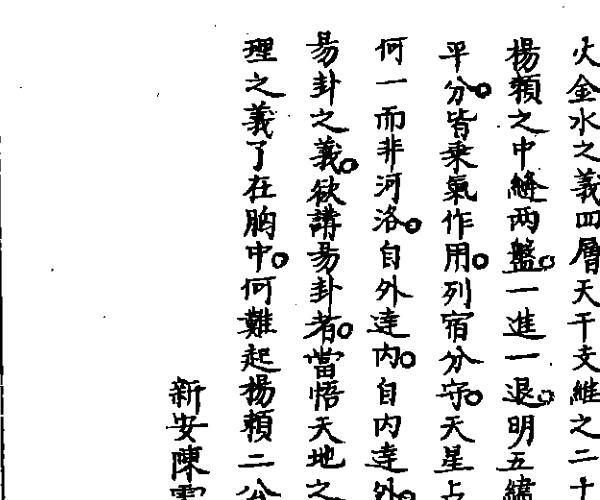 火金水之義四層天干支維之二十
楊賴之中縫兩盤一進一退明五緯
平分皆乘氣作用列宿分守天星占
何一而非河洛自外達內自內達外
易卦之義欲講易卦者當悟天地之
理之義了在胸中何難起楊賴二公
新安陳